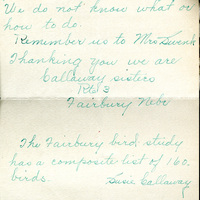 We do not know what or
how to do.
Remember us to Mrs Swenk
Thanking you we are
Callaway sisters
Rt 3
Fairbury Nebr
The Fairbury bird study
has a composite list of 160
birds.
Susie Callaway